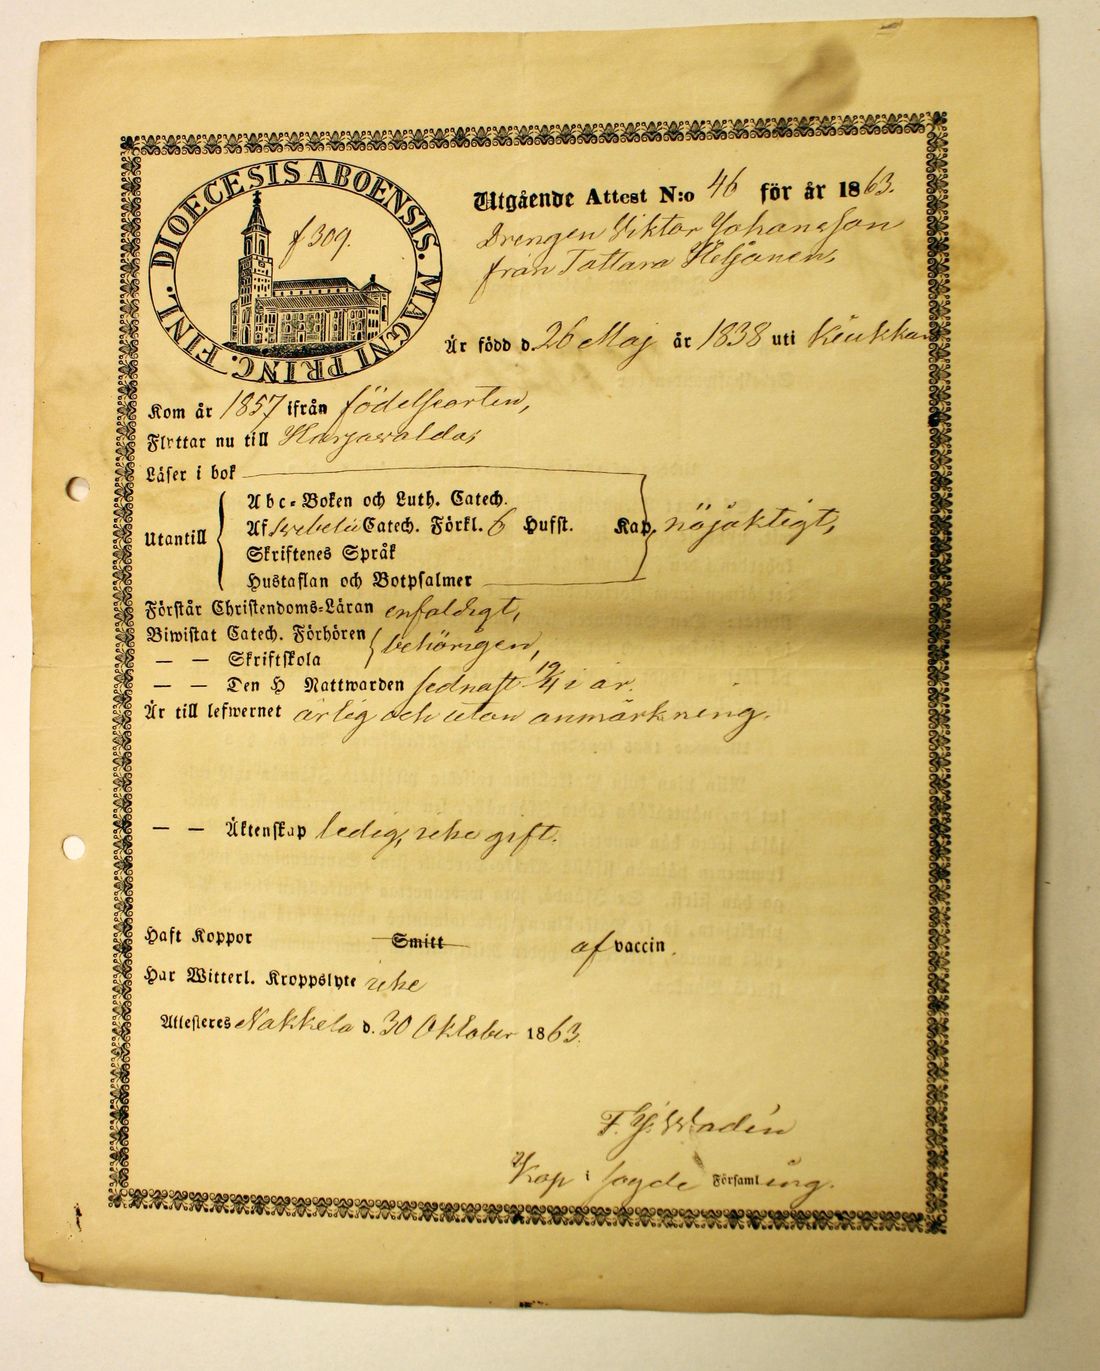 DIOECESIS ABOENSIS. MAGNI PRINC. FINL.
f 309.
Utgående Attest N:o 46 för år 1863.
Drengen Viktor Johansson
från Tattara Heljanen,
Är född d. 26 Maj år 1838 uti Keukkan
Kom år 1857 ifrån födelseorten,
Flyttar nu till Harjavalda,
Läser i bok
Utantill
Abc-Boken och Luth. Catech.
Af Svebelii Catech. Förkl. 6 Hufst. Kap. nöjaktigt,
Skriftenes Språk
Hustaflan och Botpsalmer
Förstår Christendoms-Läran enfaldigt,
Biwistat Catech. Förhören behörigen,
— — Skriftskola
— — Den H Nattwarden sednast 19/4 i år.
Är till lefwernet ärlig och utan anmärkning.
— — Äktenskap ledig, icke gift.
Haft Koppor Smitt af vaccin.
Har Witterl. Kroppslyte icke
Attesteres Nakkela d. 30 Oktober 1863.
F. Y. Wadén
Kap i sagde Församling.